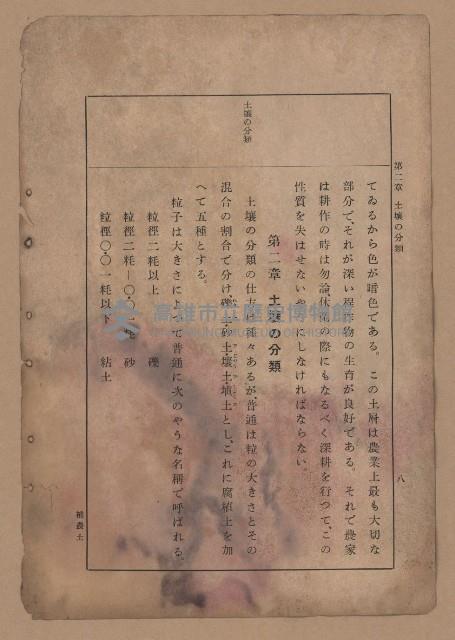 第二章 土壤の分類
八
てゐるから色が暗色である。この土層は農業上最も大切な
部分で、それが深い程作物の生育が良好である。それで農家
は耕作の時は勿論休閑の際にもなるべく深耕を行つて、この
性質を失はせないやうにしなければならない。
第二章 土壤の分類
土壤の分類
土壤の分類の仕方は種々あるが、普通は粒の大きさとその
混合の割合で分け、礫土、砂土、壤土、埴土とし、これに腐植土を加
へて五種とする。
粒子は大きさによつて普通に次のやうな名稱で呼ばれる。
粒徑二粍以上 礫
粒徑二粍—〇・〇一粍 砂
粒徑〇・〇一粍以下 粘土
植農土
高雄市立歷史博物館
KAOHSIUNG MUSEUM OF HISTORY